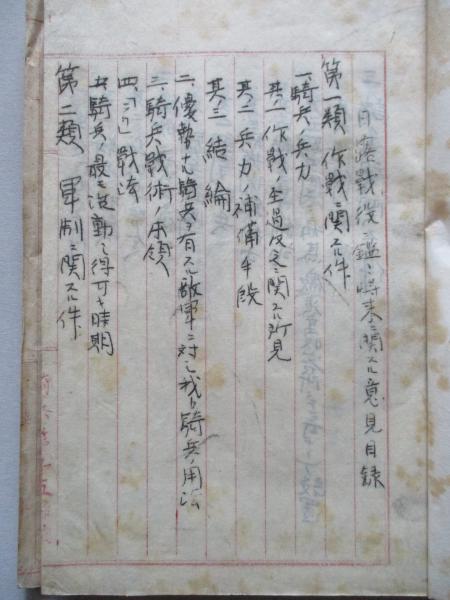 日露戦役ニ鑑ミ将来ニ関スル意見目録
第一類 作戦ニ関スル件
一、騎兵ノ兵力
其ノ一 作戦経過ニ関スル所見
其ノ二 兵力ノ補備手段
其ノ三 結論
二、優勢ナル騎兵ヲ有スル敵軍ニ対シ我カ騎兵ノ用法
三、騎兵戦術ノ本領
四、戦法
五、騎兵ノ最モ活動シ得可キ時期
第二類 軍制ニ関スル件